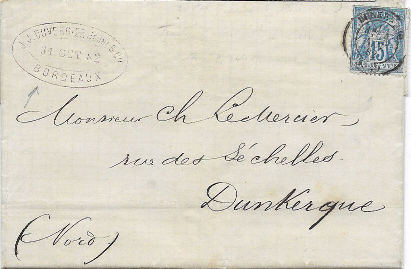 31 OCT 82
BORDEAUX
15
Monsieur Ch LeMercier,
rue des Séchelles.
Dunkerque
(Nord)